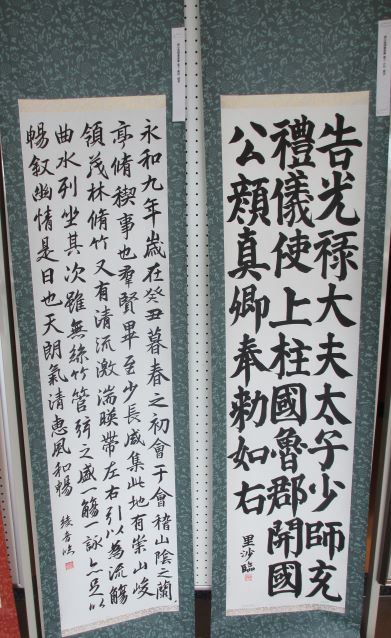 告光禄大夫太子少師充
禮儀使上柱國魯郡開國
公顔真卿奉勅如右
里沙臨
永和九年歳在癸丑暮春之初會于會稽山陰之蘭
亭脩禊事也羣賢畢至少長咸集此地有崇山峻
領茂林脩竹又有清流激湍暎帶左右引以為流觴
曲水列坐其次雖無絲竹管弦之盛一觴一詠亦足以
暢叙幽情是日也天朗氣清恵風和暢